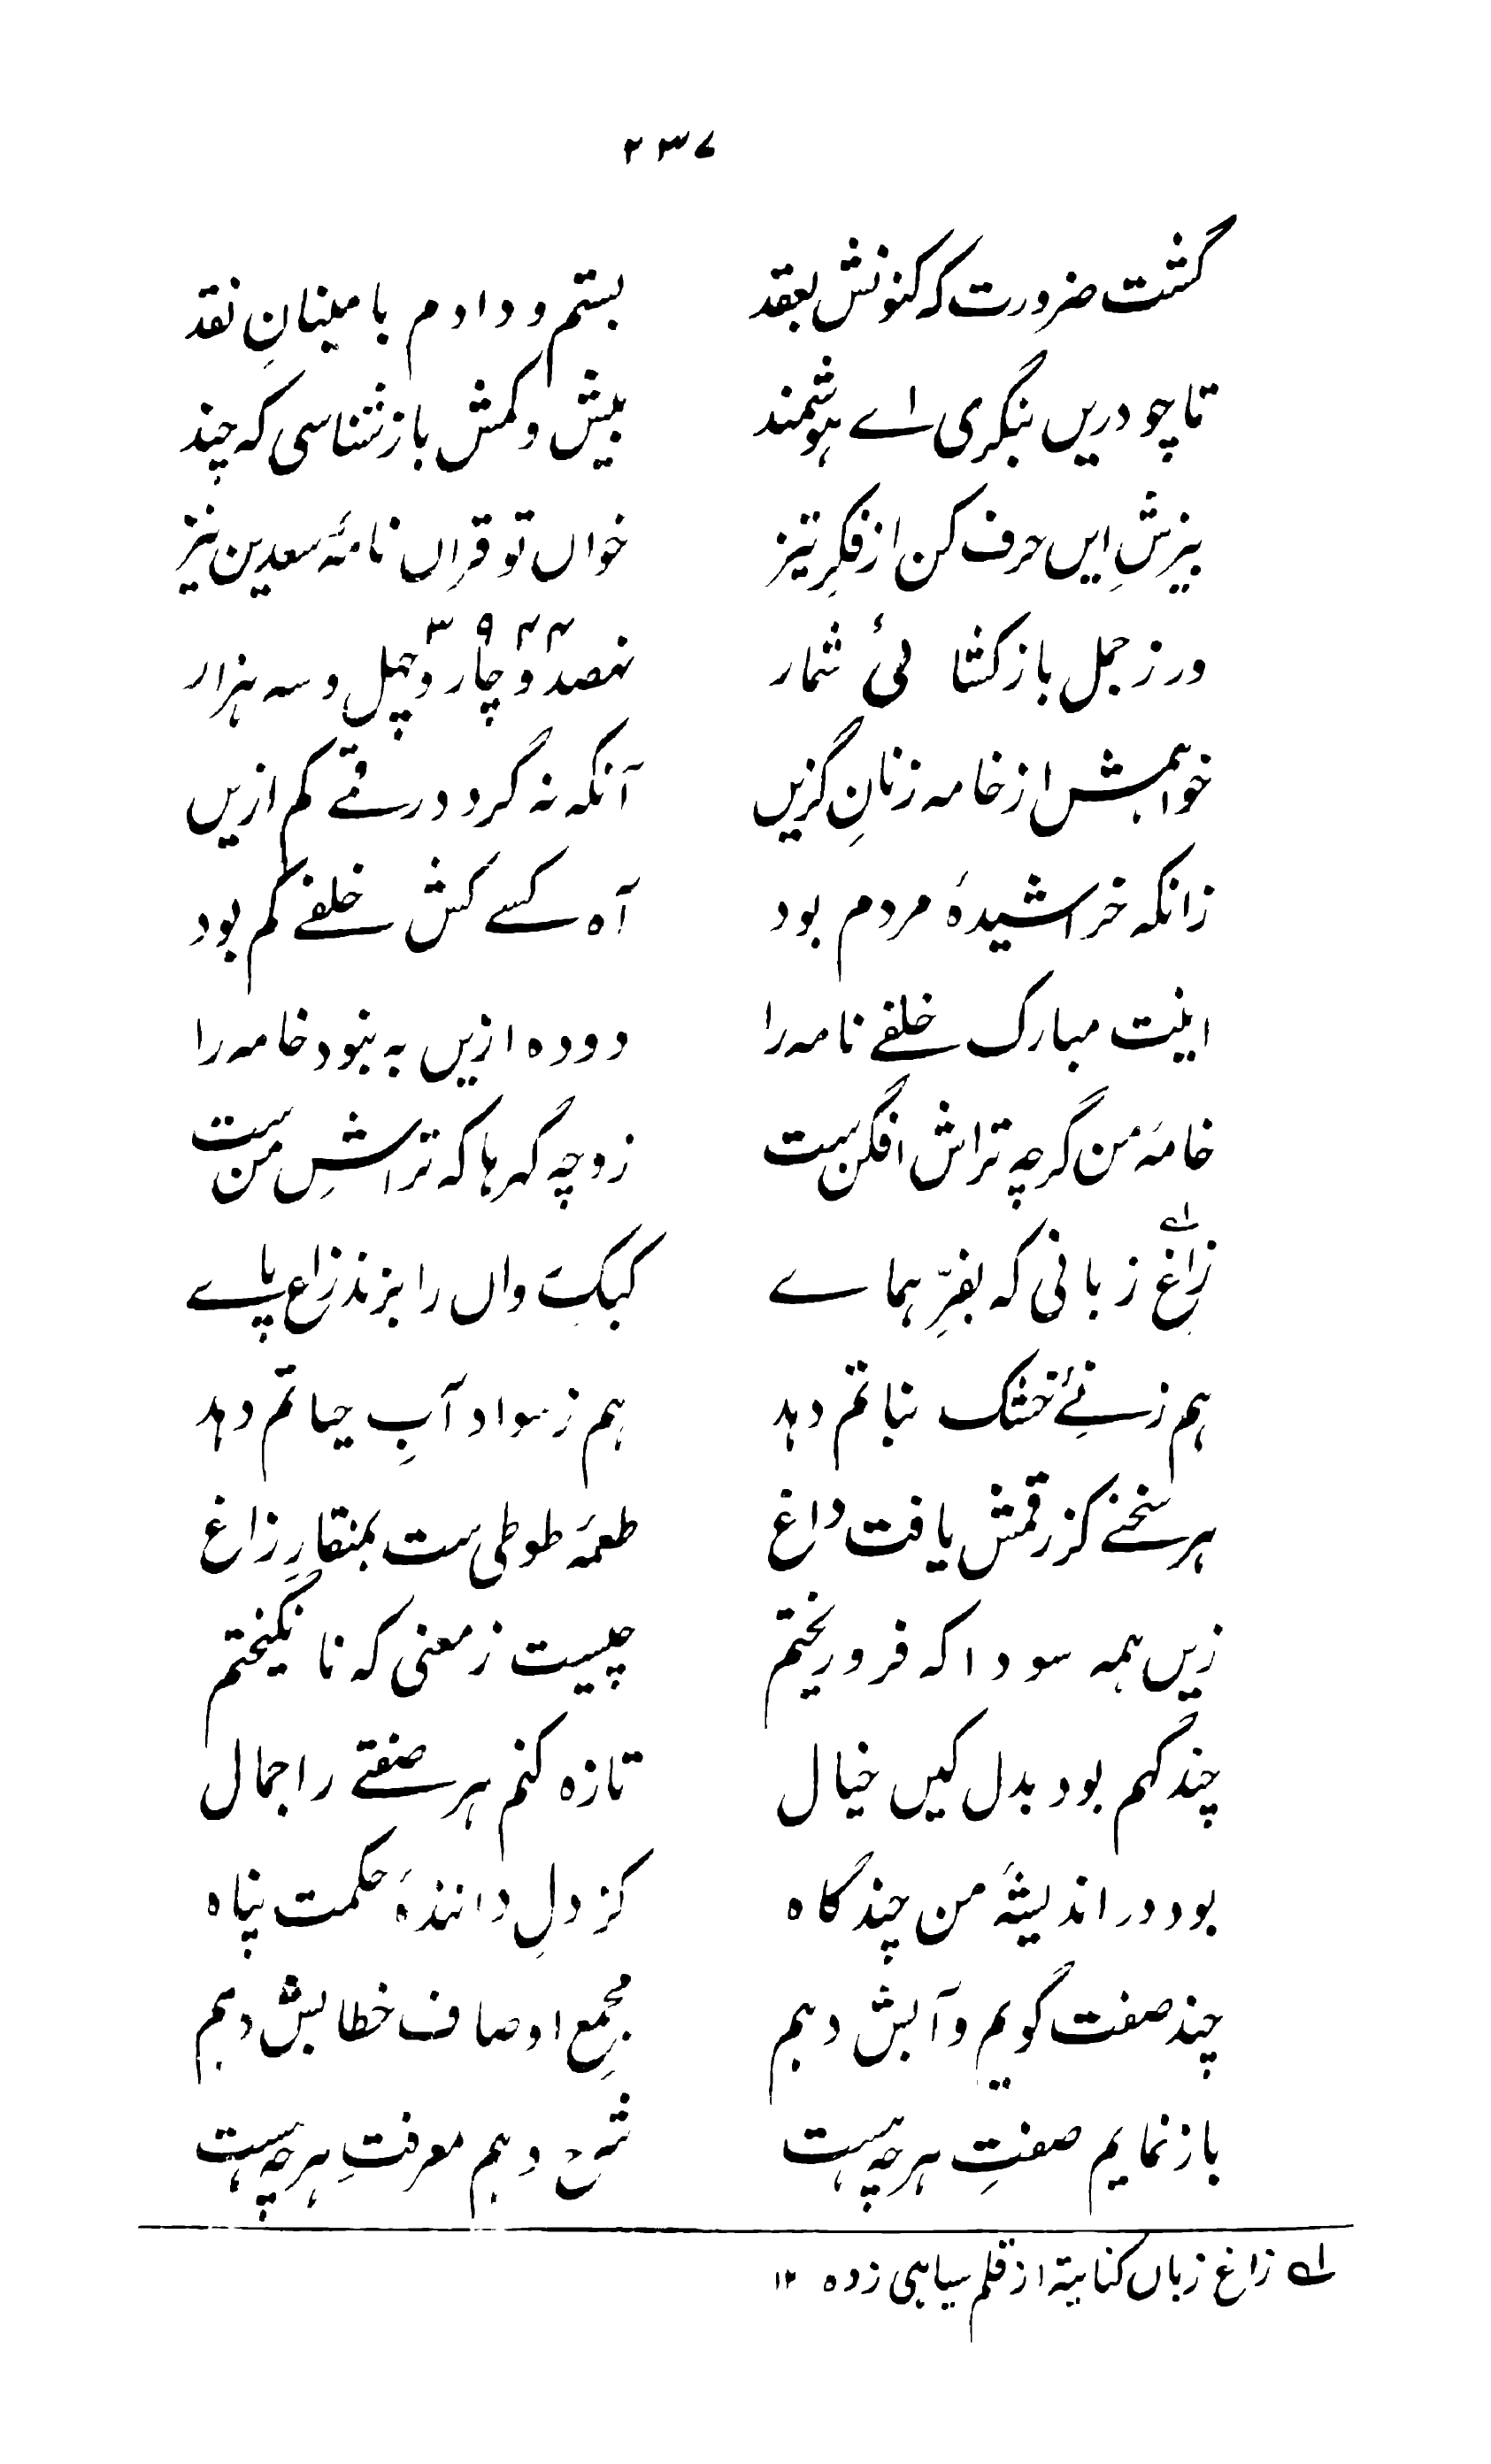 ۲۳۷
گشت ضرورت که کنونش بعقد بستم و دادم بامینانِ نقد
تا چو دریں بنگری اے ہوشمند بیش و کمش باز شناسی که چند
بیزشِ ایں حرف کن از فکرِ تیز خواں تو قِراں نامۂ سعدین نیز
ور ز جمل باز کشائی شمار نہصد و چار و چہل و سہ ہزار ۳۹۴۴
خواہمش از خامہ زنانِ گزیں آنکہ نہ گردد رقمے کم ازیں
زانکہ خراشیدۂ مردم بود آہ کسے کش خلفے کم بود
اینت مبارک خلفے نامہ را دودہ ازیں بہ نبود خامہ را
خامۂ من گرچہ تراش افگن ست زو چہ گہرہا کہ تراشِ من ست
زاغ زبانی کہ بفرِّ ہمایے لہ کبکِ واں را بزند زاغ پاے
ہم ز نۓِ خشک نباتم دہد ہم ز سواد آبِ حیاتم دہد
ہر سخنے کز رقمش یافت داغ طعمۂ طوطی ست بمنقارِ زاغ
زیں ہمہ سودا کہ فرو ریختم چیست ز معنی کہ نا نگیختم
چند گہم بود بدل کیں خیال تازہ کنم ہر صفتے را جمال
بود در اندیشۂ من چند گاہ کز دلِ دانندۂ حکمت پناہ
چند صفت گویم و آبش دہم مجمعِ اوصاف خطابش دہم
باز نمایم صفتِ ہرچہ ہست شرح دہم معرفتِ ہرچہ ہست
لہ زاغ زباں کنایۃ از قلم سیاہی زدہ ۱۲